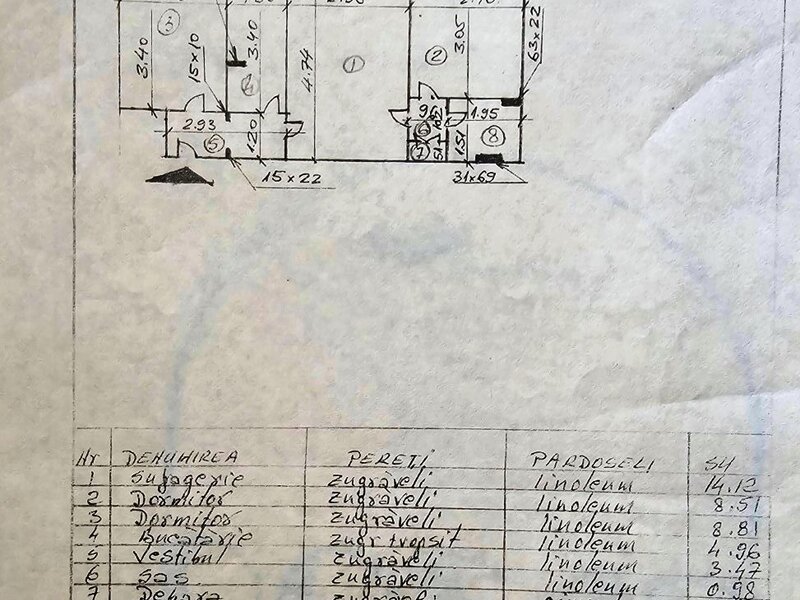 3
3.40
15×10
3.40
4
4.74
1
2
3.05
63×22
2.93
5
1.20
6
7
1.51
1.95
8
15×22
31×69
Nr DENUMIREA PEREŢI PARDOSELI SU
1 Sufragerie zugrăveli linoleum 14.12
2 Dormitor zugrăveli linoleum 8.51
3 Dormitor zugrăveli linoleum 8.81
4 Bucătărie zugr tropsit linoleum 4.96
5 Vestibul zugrăveli linoleum 3.47
6 Sas zugrăveli linoleum 0.98
7 Debara